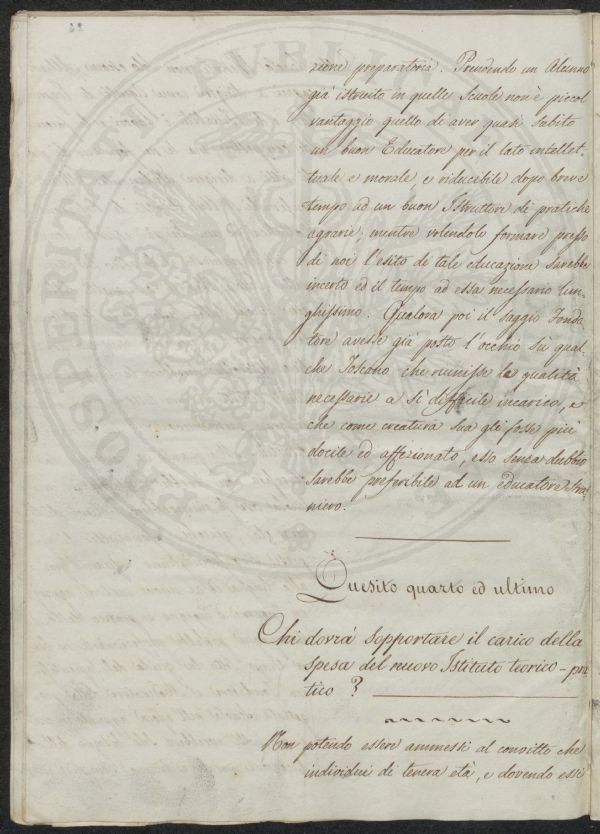 zione preparatoria. Prendendo un Alunno
già istruito in quelle Scuole non è piccol
vantaggio quello di aver quasi subito
un buon Educatore per il lato intellet-
tuale e morale e riducibile dopo breve
tempo ad un buon Istruttore di pratiche
agrarie; mentre volendolo formare presso
di noi l'esito di tale educazione sarebbe
incerto ed il tempo ad essa necessario lun-
ghissimo. Qualora poi il saggio Fonda-
tore avesse già posto l'occhio su qual-
che Toscano che riunisse le qualità
necessarie a sì difficile incarico, e
che come creatura sua gli fosse più
docile ed affezionato, esso senza dubbio
sarebbe preferibile ad un educatore stra-
niero.
Quesito quarto ed ultimo
Chi dovrà sopportare il carico della
spesa del nuovo Istituto teorico-pra
tico?
Non potendo essere ammessi al convitto che
individui di tenera età, e dovendo essi